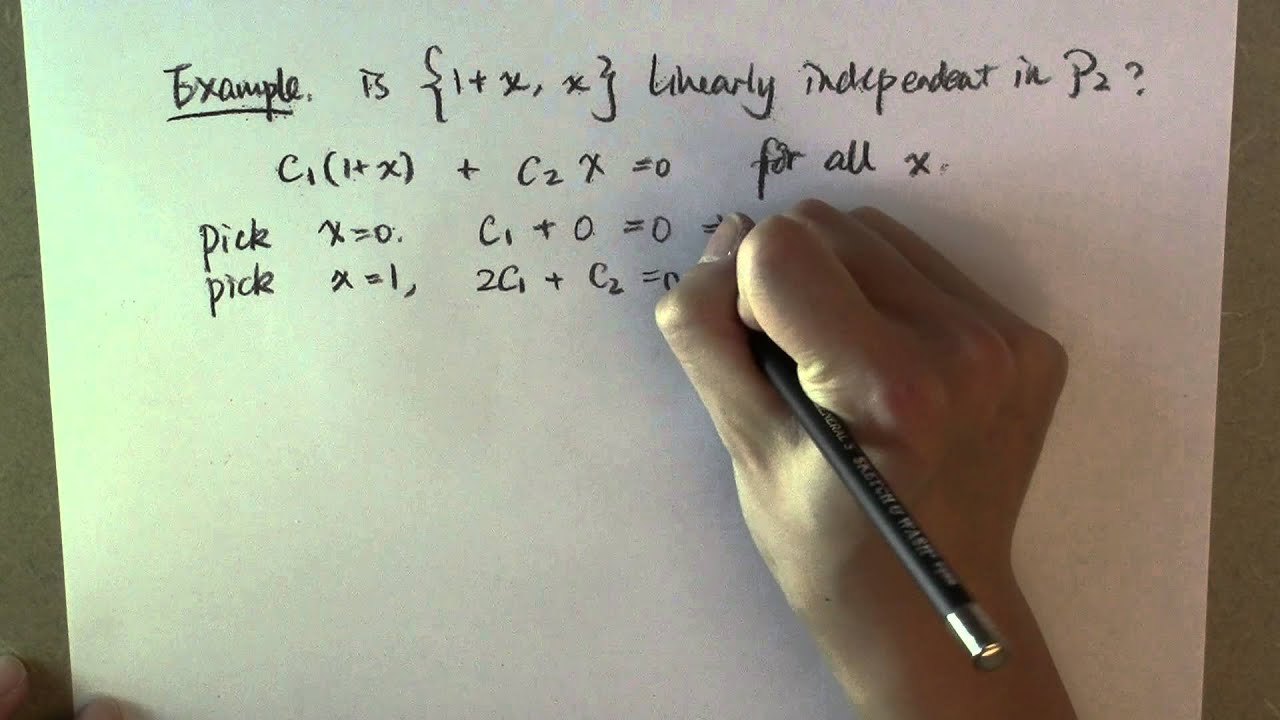 Example. is {1+x, x} Linearly independent in P2?
C1(1+x) + C2 x =0 for all x.
pick x=0. C1 + 0 =0
pick x=1, 2C1 + C2 =0
GENERAL'S SKETCH & WASH